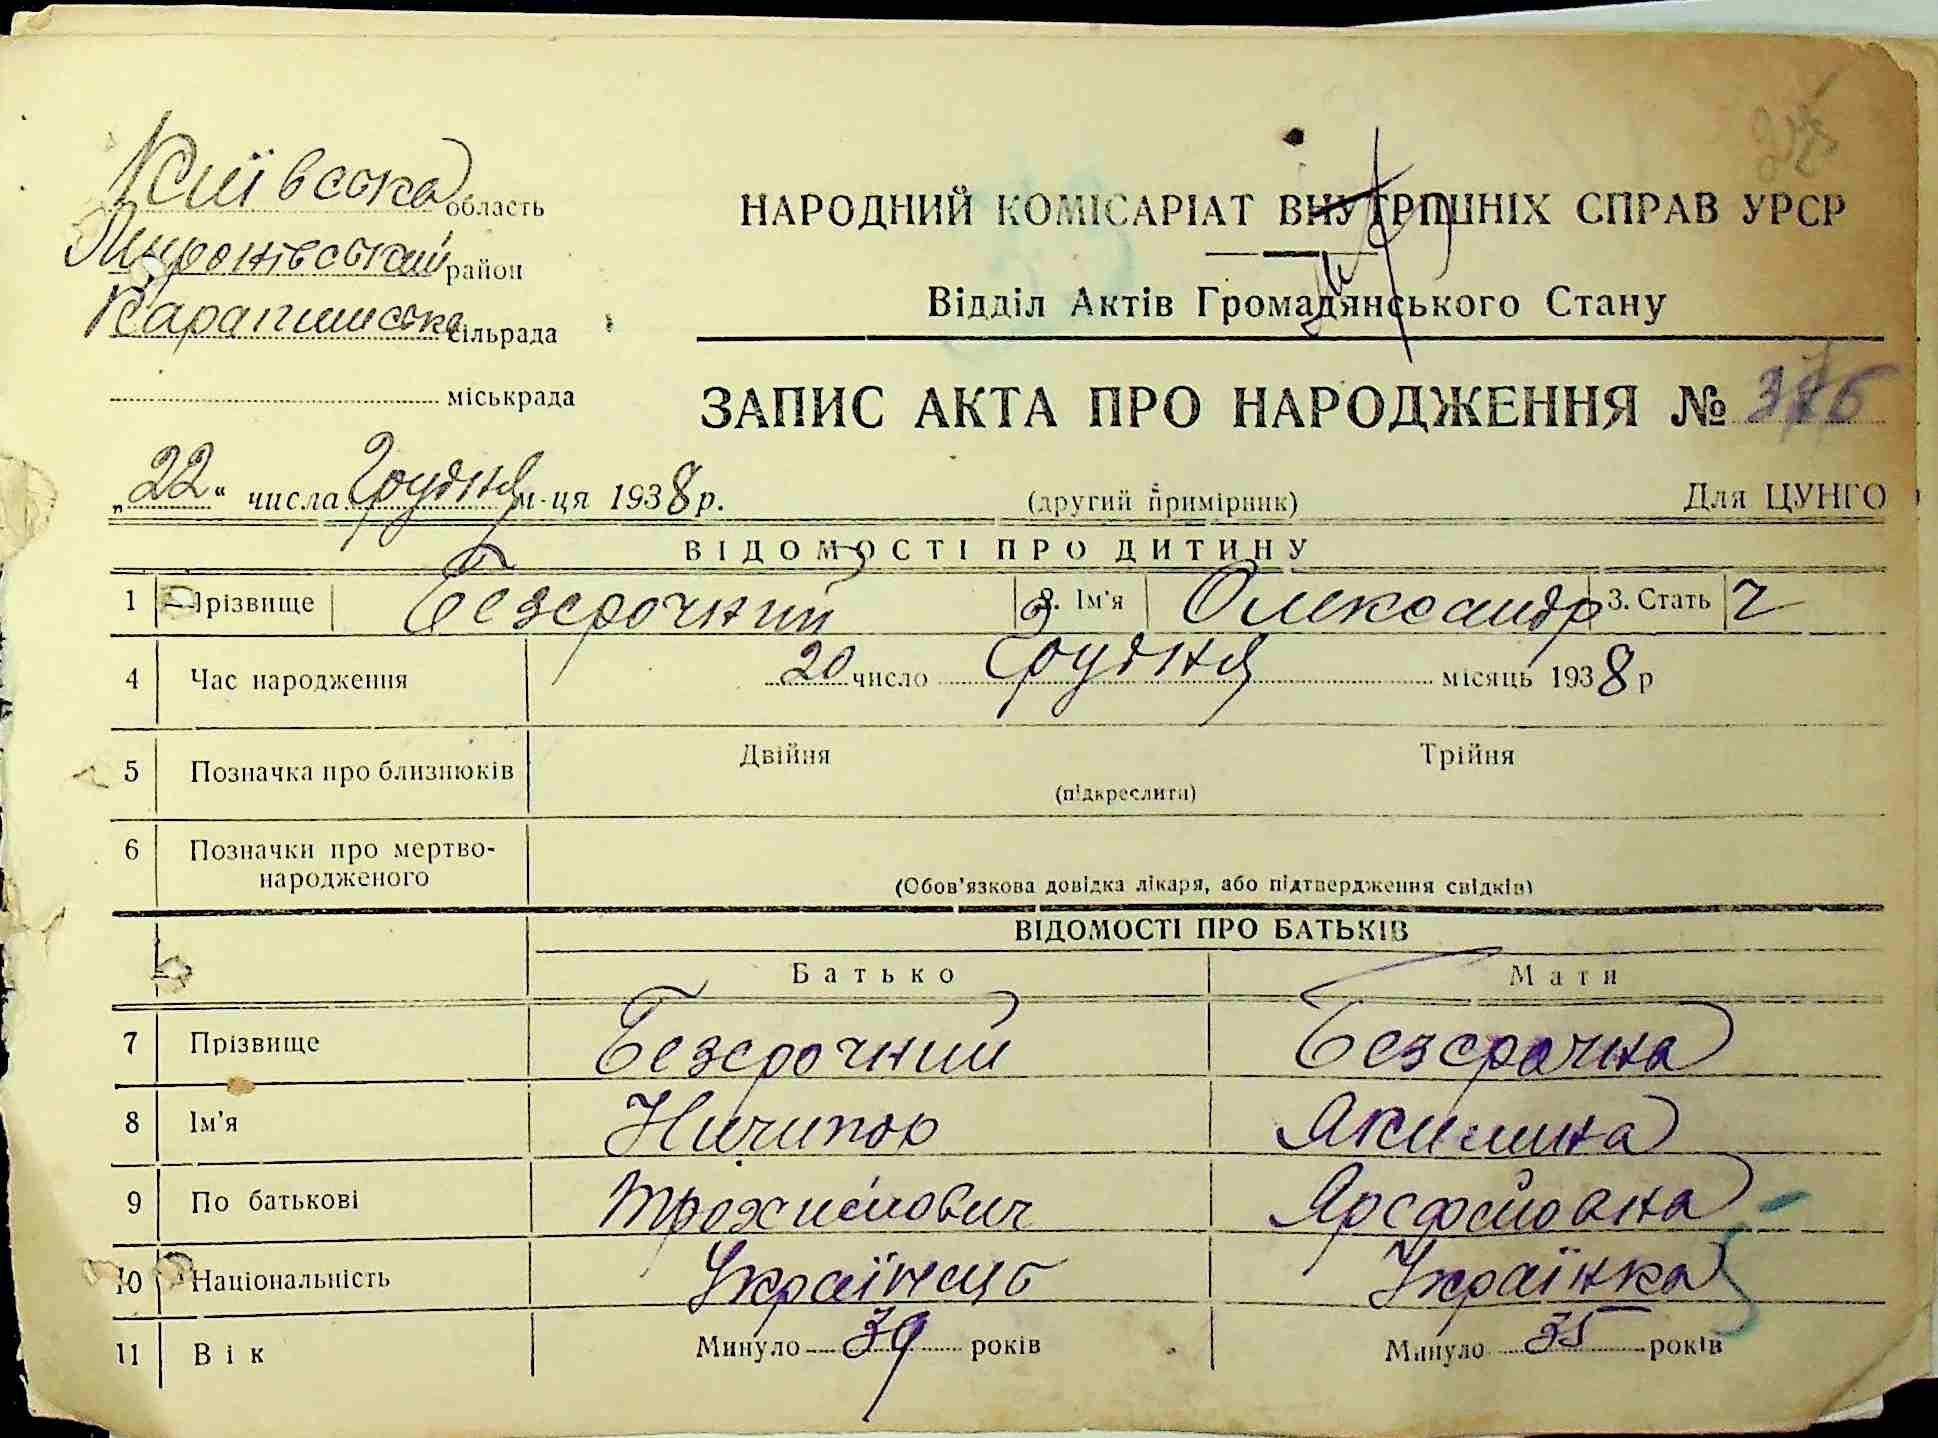 Київська область
Миронівський район
Карапишська сільрада
міськрада
НАРОДНИЙ КОМІСАРІАТ ВНУТРІШНІХ СПРАВ УРСР
Відділ Актів Громадянського Стану
ЗАПИС АКТА ПРО НАРОДЖЕННЯ № 376
„22“ числа Грудня м-ця 1938 р.
(другий примірник)
Для ЦУНГО
ВІДОМОСТІ ПРО ДИТИНУ
1 Прізвище Безсрочний 2. Ім'я Олександр 3. Стать Ч
4 Час народження 20 число Грудня місяць 1938 р
5 Позначка про близнюків Двійня Трійня
(підкреслити)
6 Позначки про мертво-
народженого
(Обов'язкова довідка лікаря, або підтвердження свідків)
ВІДОМОСТІ ПРО БАТЬКІВ
Батько Мати
7 Прізвище Безсрочний Безсрочна
8 Ім'я Ничипор Якилина
9 По батькові Трохимович
10 Національність Українець Українка
11 Вік Минуло 39 років Минуло 35 років